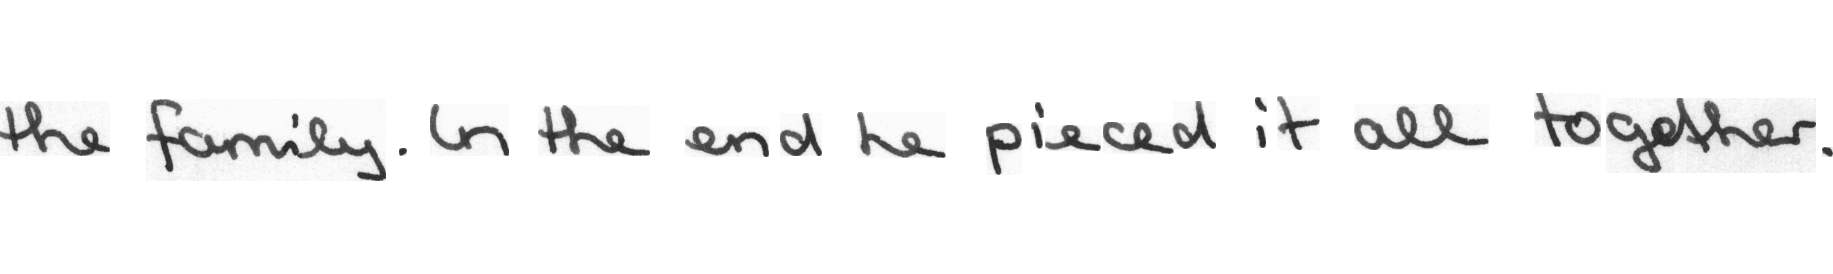 the family. In the end he pieced it all together.